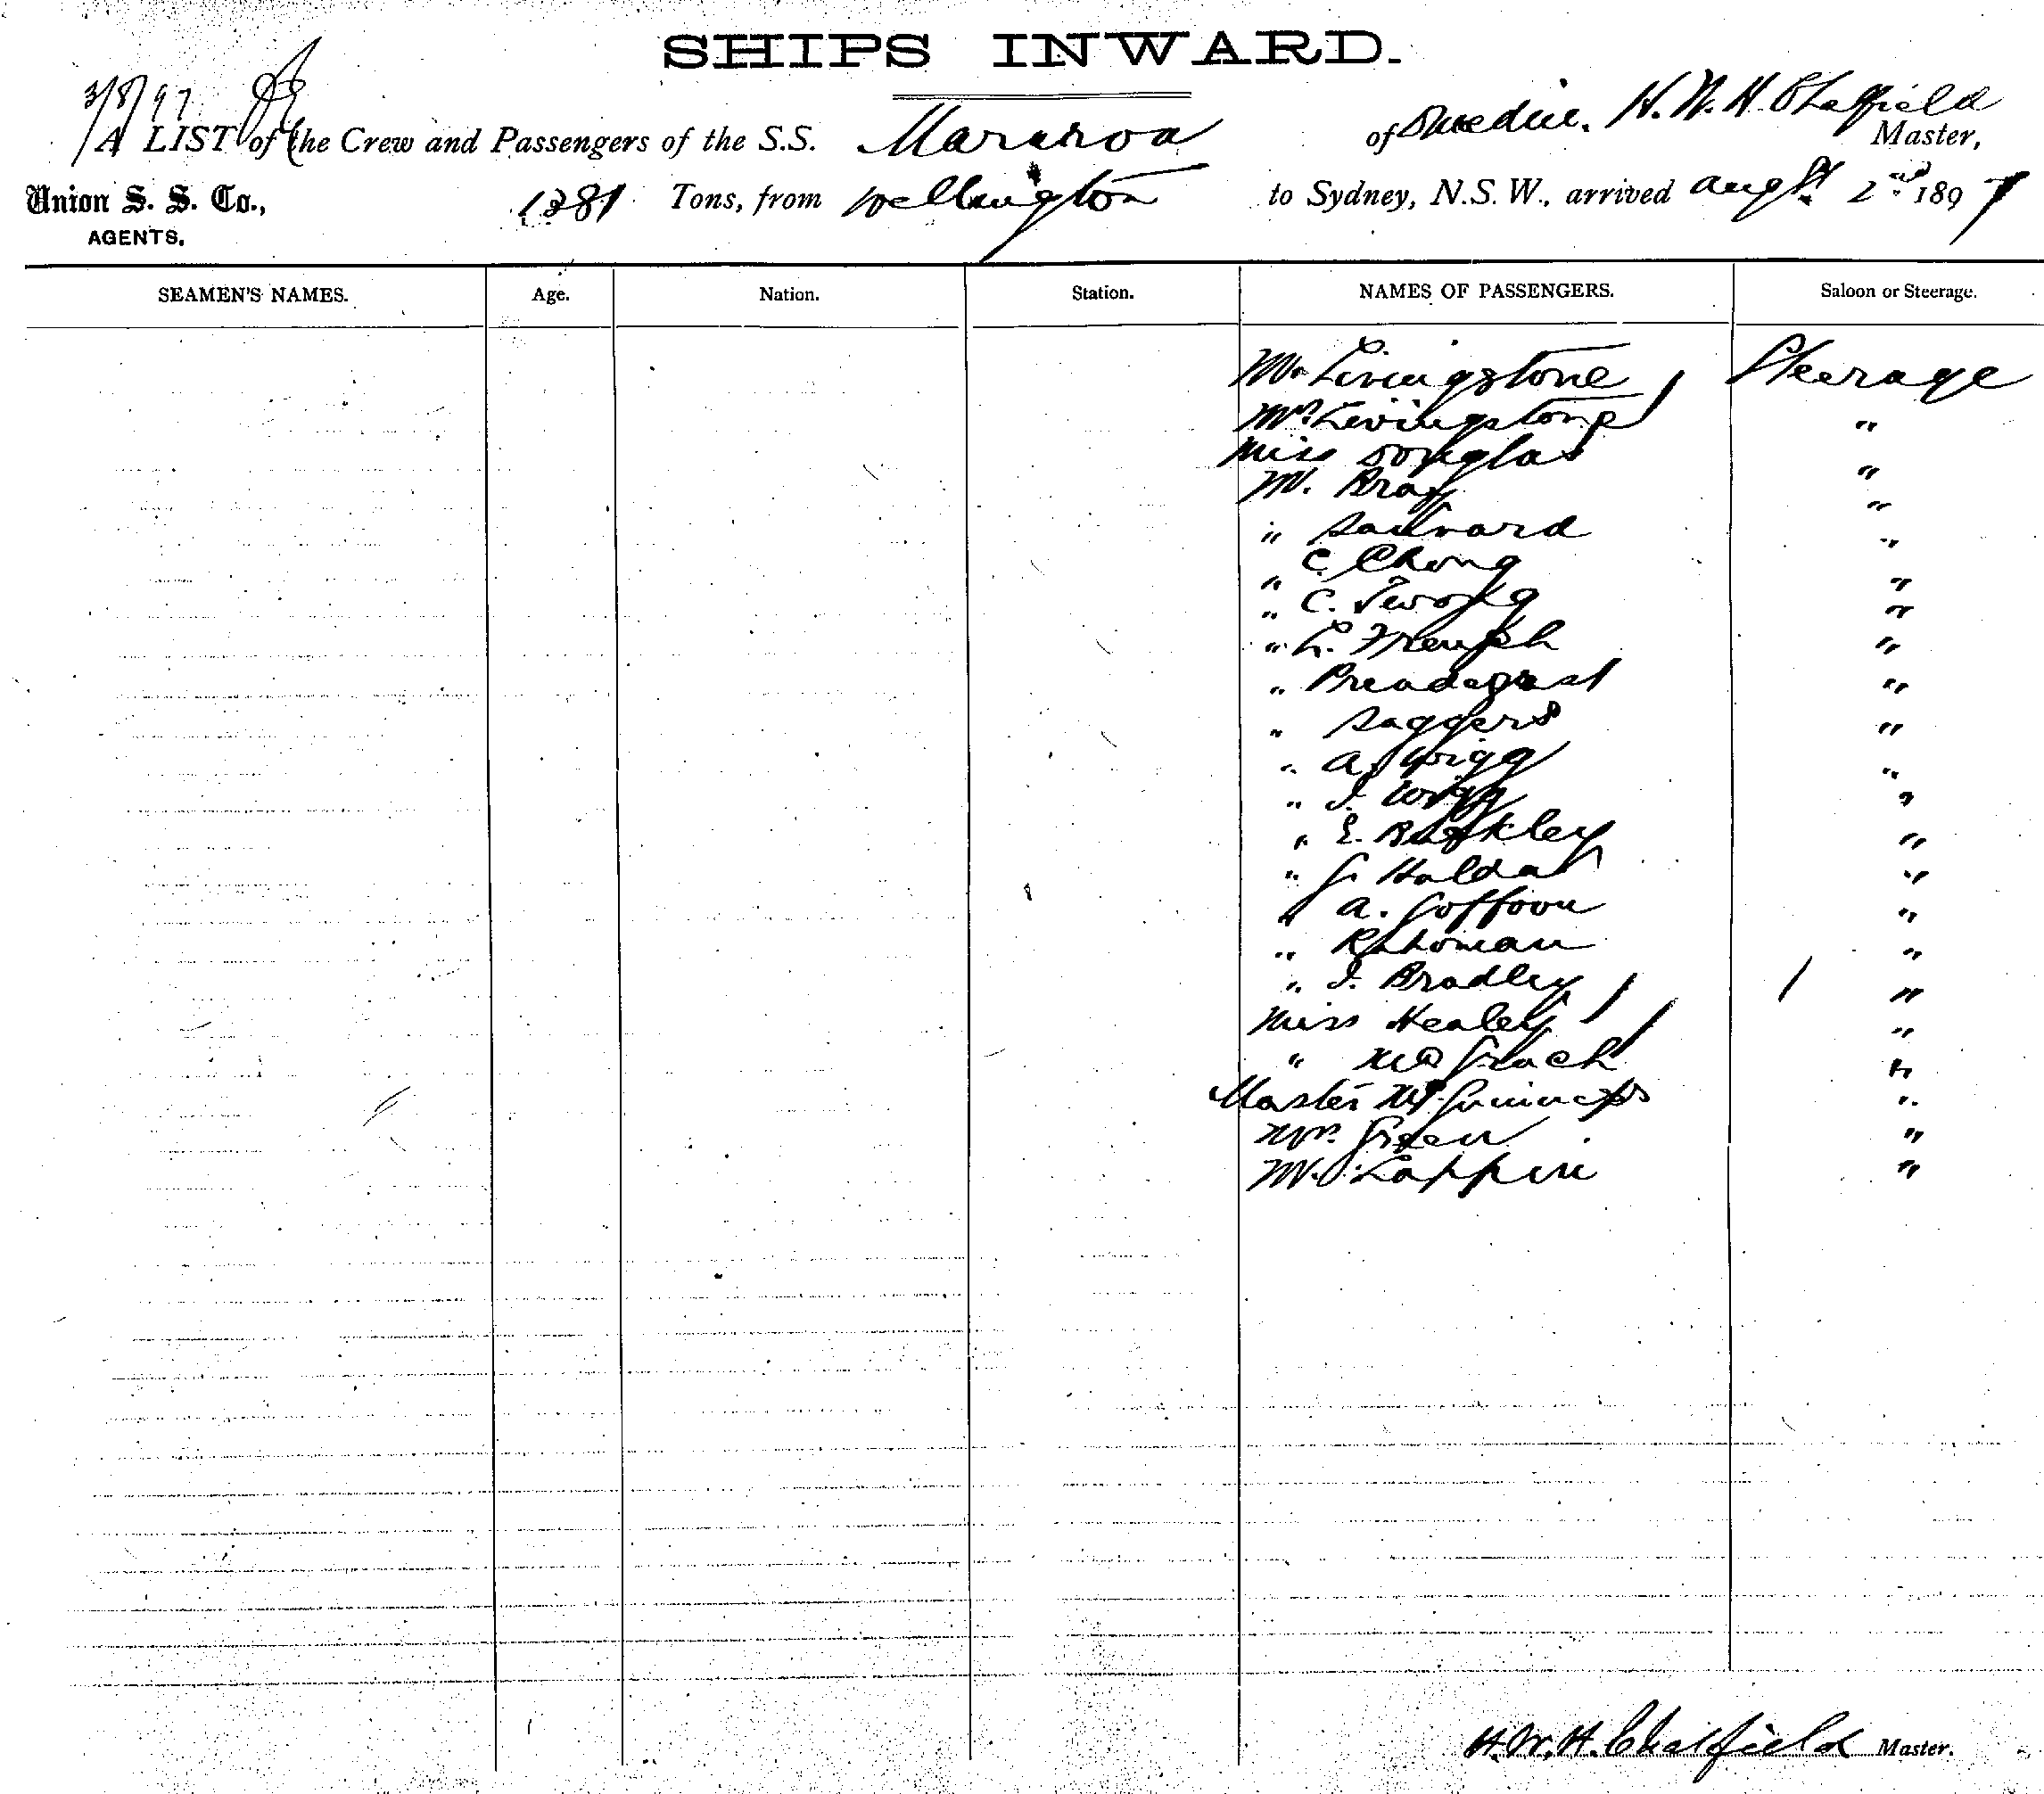 SHIPS INWARD.
3/8/97
A LIST of the Crew and Passengers of the S.S. Mararoa of Dunedin. H. W. H. Chatfield Master,
Union S. S. Co., AGENTS. 1381 Tons, from Wellington to Sydney, N.S.W., arrived Augst 2nd 1897
SEAMEN'S NAMES. Age. Nation. Station. NAMES OF PASSENGERS. Saloon or Steerage.
Mr Livingstone Steerage
Mrs Livingstone "
Miss Douglas "
Mr. Bray "
" "
" C. Chong "
" C. "
" L. French "
" "
" Saggers "
" A. Wigg "
" J. Wigg "
" E. "
" "
" A. "
" "
" J. Bradley "
Miss Healey "
" "
Master "
Mrs. Green "
Mr. Lappin "
H. W. H. Chatfield Master.